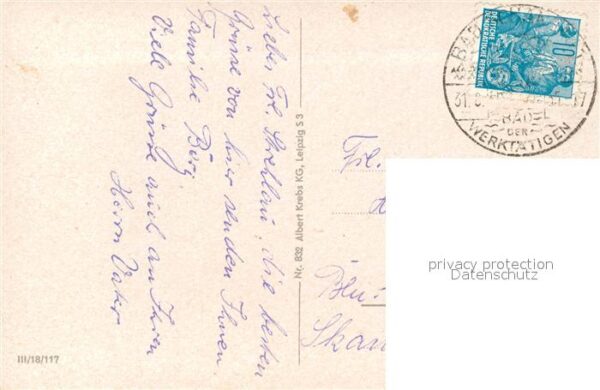 Liebes Frl. Strehlau, die besten
Grüße von hier senden Ihnen
Familie
Viele Grüße auch an Ihren
Herrn Vater
Nr. 832 Albert Krebs KG, Leipzig S 3
III/18/117
DEUTSCHE
DEMOKRATISCHE REPUBLIK
10
BAD
31.8.
17
BAD
DER
WERKTÄTIGEN
Frl.
privacy protection
Datenschutz